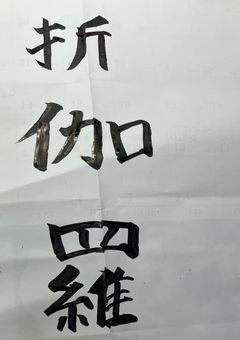 折伽羅